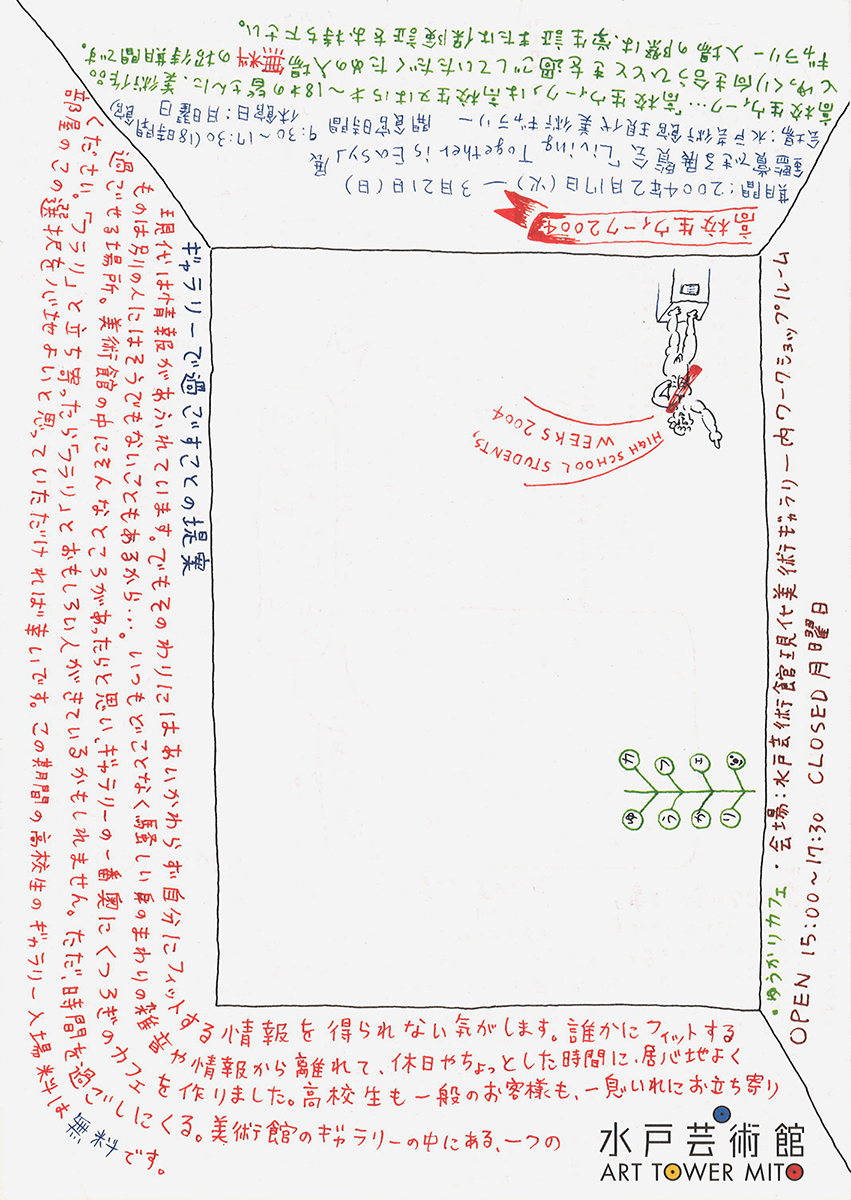 高校生ウィーク2004
期間:2004年2月17日(火)ー3月21日(日)
鑑賞できる展覧会「Living Together is Easy」展
会場:水戸芸術館現代美術ギャラリー 開館時間 9:30〜17:30(18時閉館)
休館日:月曜日
高校生ウィーク…高校生ウィークは高校生又は15才〜18才の皆さんに、美術作品
とゆっくり向き合うひとときを過ごしていただくための入場無料の招待期間です。
ギャラリー入場の際は、学生証または保険証をお持ち下さい。
ギャラリーで過ごすことの提案
現代は情報があふれています。でもそのわりにはあいかわらず自分にフィットする情報を得られない気がします。誰かにフィットする
ものは別の人にはそうでもないこともあるから…。いつもどことなく騒しい身のまわりの雑音や情報から離れて、休日やちょっとした時間に、居心地よく
過ごせる場所。美術館の中にそんなところがあったらと思い、ギャラリーの一番奥にくつろぎのカフェを作りました。高校生も一般のお客様も、一息いれにお立ち寄り
ください。「フラリ」と立ち寄ったら「フラリ」とおもしろい人がきているかもしれません。ただ、時間を過ごしにくる。美術館のギャラリーの中にある、一つの
部屋のこの選択を心地よいと思っていただければ幸いです。この期間の高校生のギャラリー入場料は無料です。
HIGH SCHOOL STUDENTS,
WEEKS 2004
ゆうかり
カフェ
・ゆうかりカフェ・会場:水戸芸術館現代美術ギャラリー内ワークショップルーム
OPEN 15:00〜17:30 CLOSED 月曜日
水戸芸術館
ART TOWER MITO